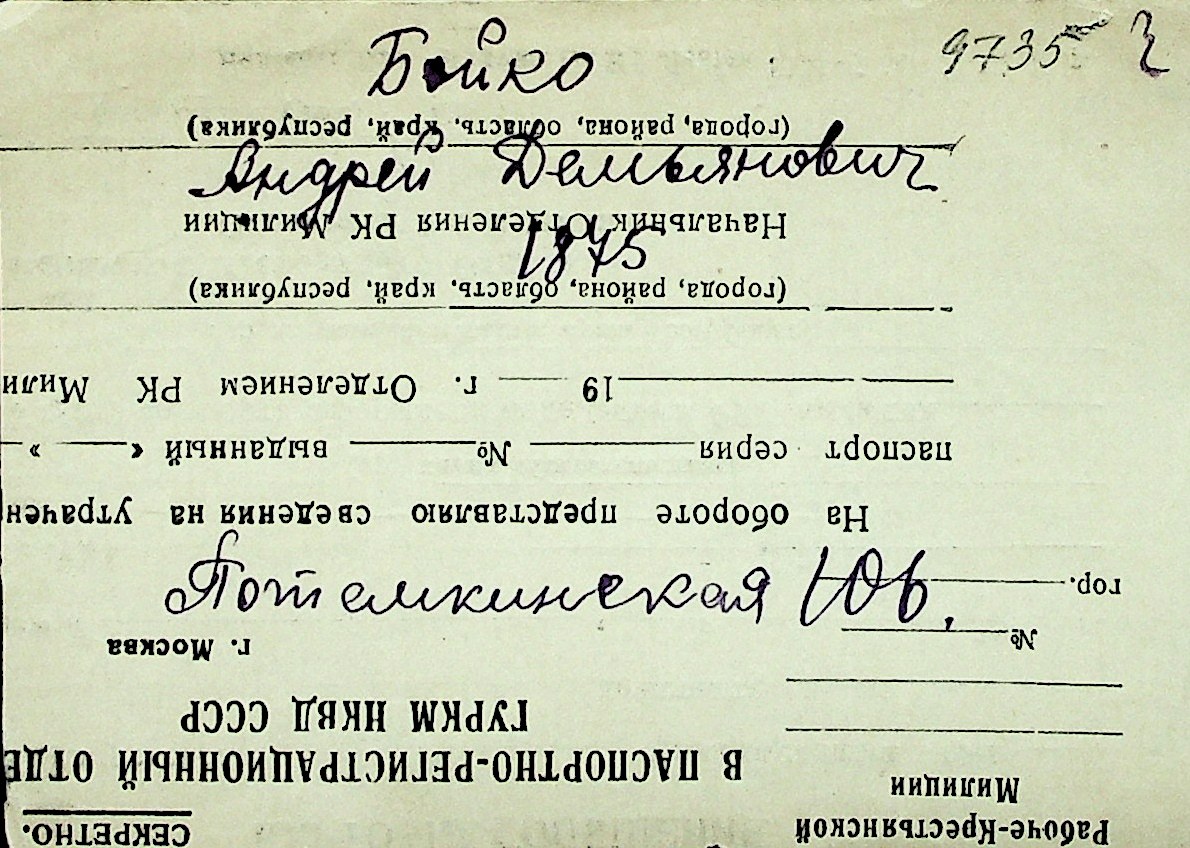 9735
Бойко
Андрей Демьянович
1875
Потемкинская 106.
Рабоче-Крестьянской
Милиции
№
гор.
СЕКРЕТНО.
В ПАСПОРТНО-РЕГИСТРАЦИОННЫЙ ОТДЕ
ГУРКМ НКВД СССР
г. Москва
На обороте представляю сведения на утрачен
паспорт серия № выданный « »
19 г. Отделением РК Мили
(города, района, область, край, республика)
Начальник Отделения РК Милиции
(города, района, область, край, республика)